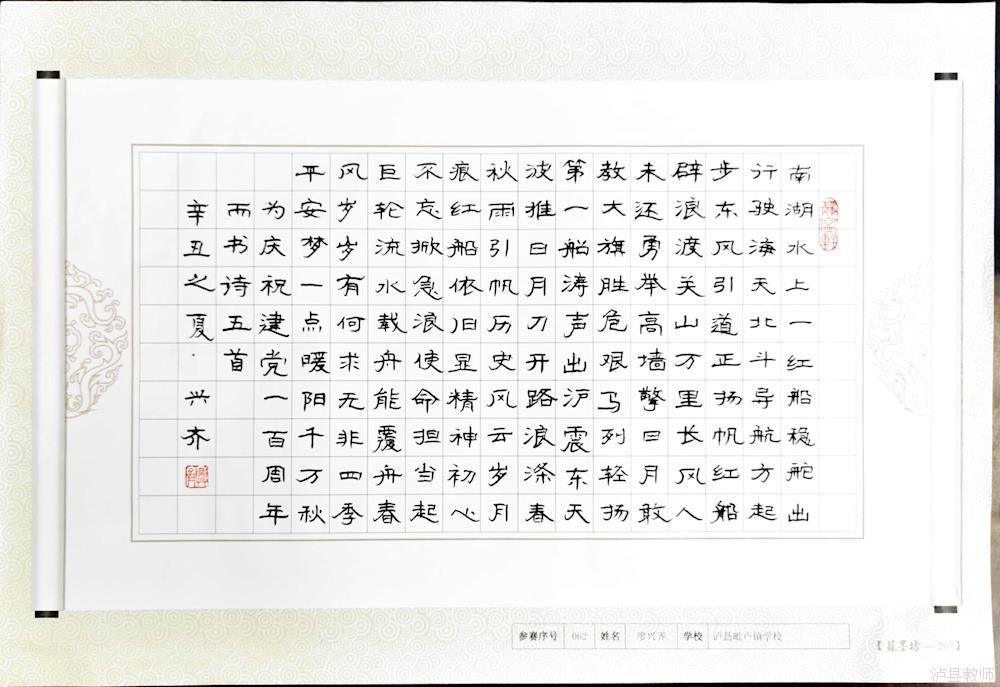 南湖水上一红船稳舵出
行驶海天北斗导航方起
步东风引道正扬帆红船
辟浪渡关山万里长风人
未还勇举高墙擎日月敢
教大旗胜危艰马列轻扬
第一船涛声出沪震东天
波推日月刀开路浪涤春
秋雨引帆历史风云岁月
痕红船依旧显精神初心
不忘掀急浪使命担当起
巨轮流水载舟能覆舟春
风岁岁有何求无非四季
平安梦一点暖阳千万秋
为庆祝建党一百周年
而书诗五首
辛丑之夏·兴齐
参赛序号 062 姓名 廖兴齐 学校 泸县毗卢镇学校
【蘇墨坊—207】
泸县教师